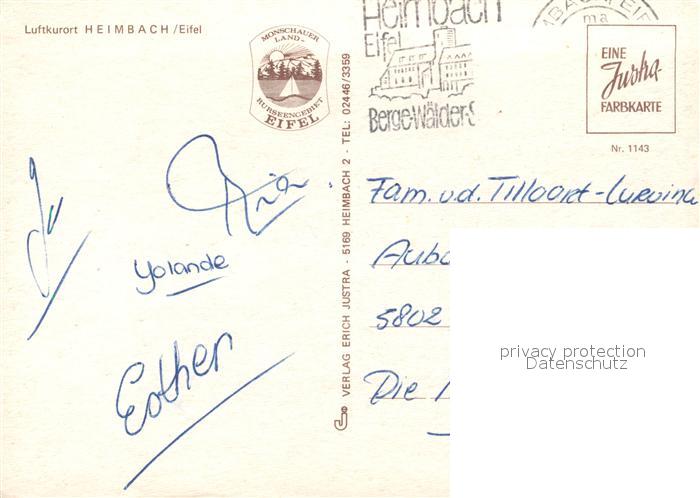 Luftkurort HEIMBACH /Eifel
MONSCHAUER
LAND-
RURSEENGEBIET
EIFEL
Heimbach
Eifel
Berge-Wälder-S
ma
EINE
Justra-
FARBKARTE
Nr. 1143
VERLAG ERICH JUSTRA · 5169 HEIMBACH 2 - TEL: 02446/3359
Yolande
Esther
Fam. v.d. Tillaart-
5802
Die
privacy protection
Datenschutz